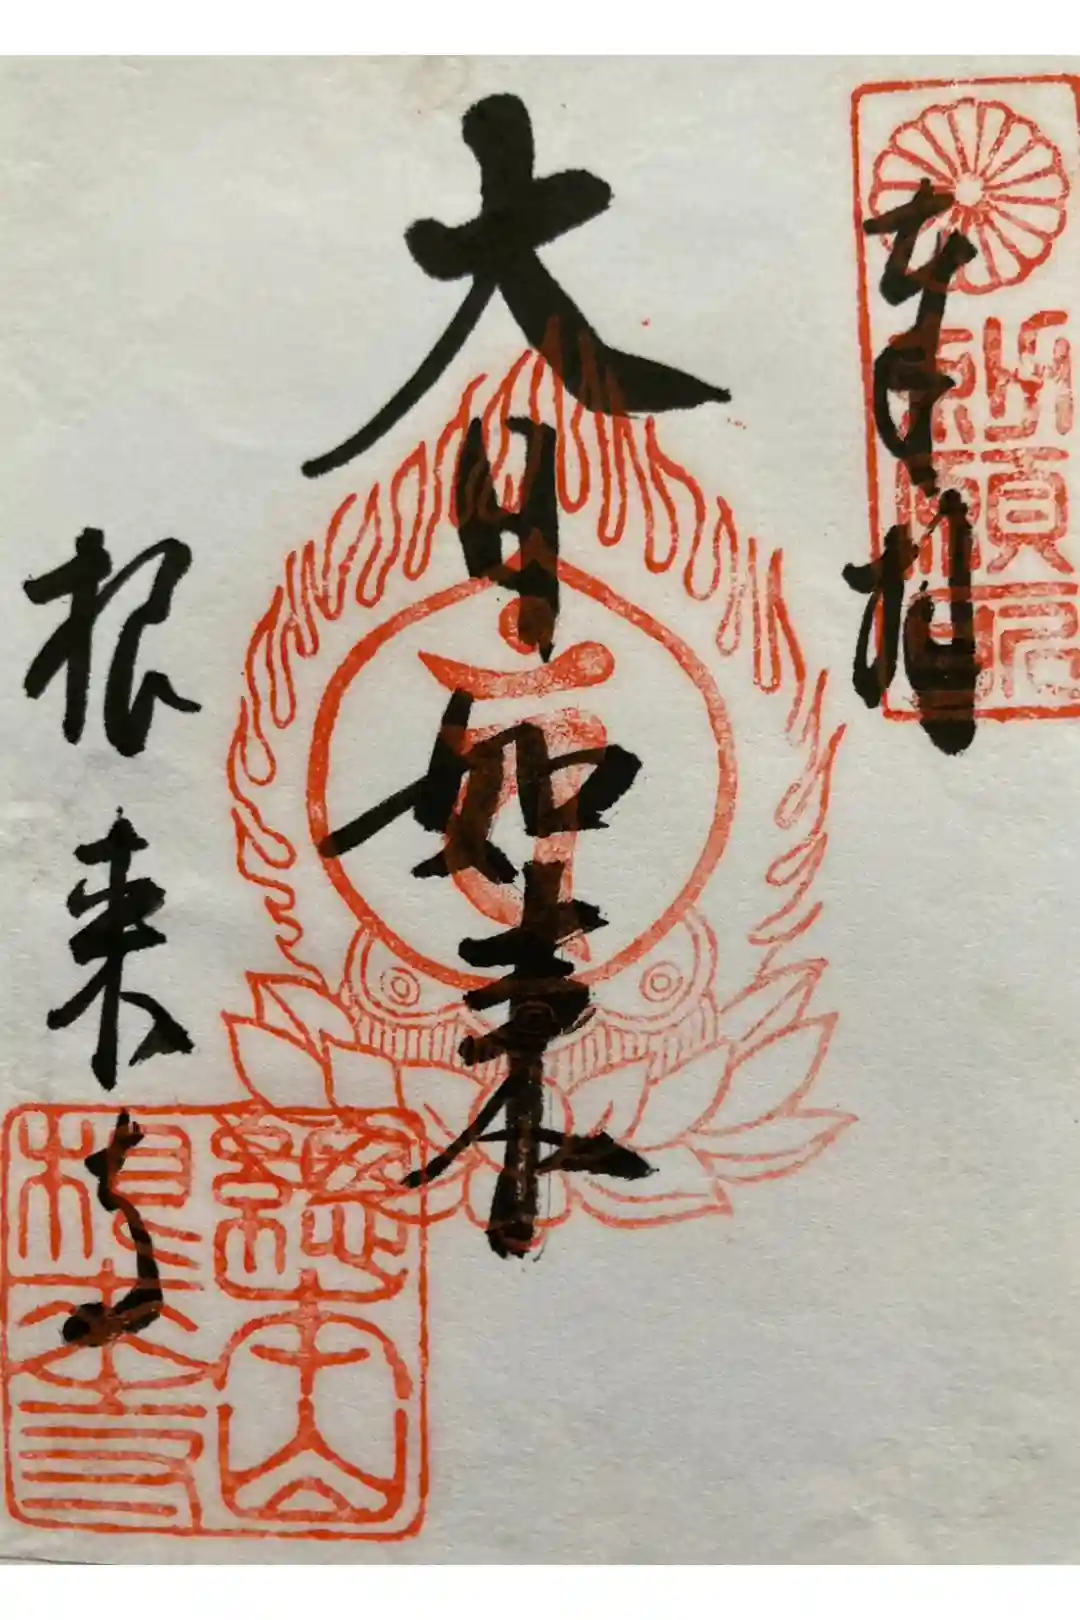 奉拝
勅願所
大日如来
根来寺
總本山
根来寺